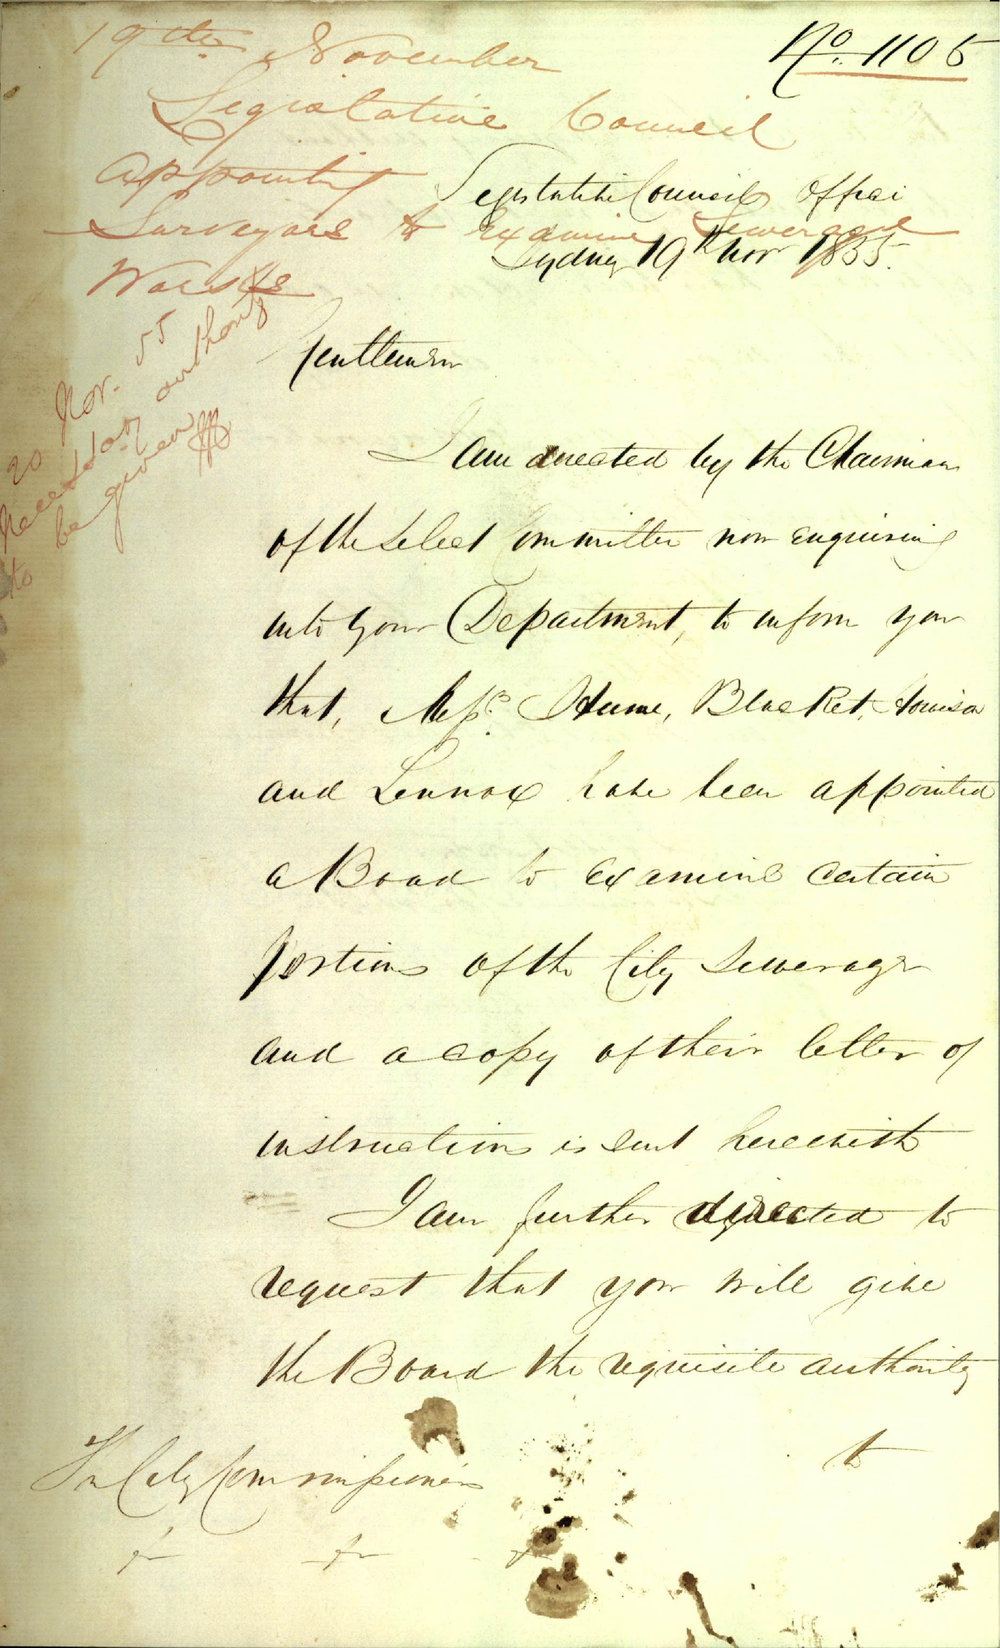 No. 1105
19th November
Legislative Council
Appointing
Surveyors to Examine Sewerage
Works
20 Nov. 55
Necessary authority
to be given
Legislative Council Office
Sydney 19th Nov 1855.
Gentlemen
I am directed by the Chairman
of the Select Committee now enquiring
into your Department, to inform you
that, Messrs. Hume, Blacket,
and Lennox have been appointed
a Board to examine certain
portions of the City Sewerage
and a copy of their letter of
instructions is sent herewith
I am further directed to
request that you will give
the Board the requisite authority
to
The City Commissioners